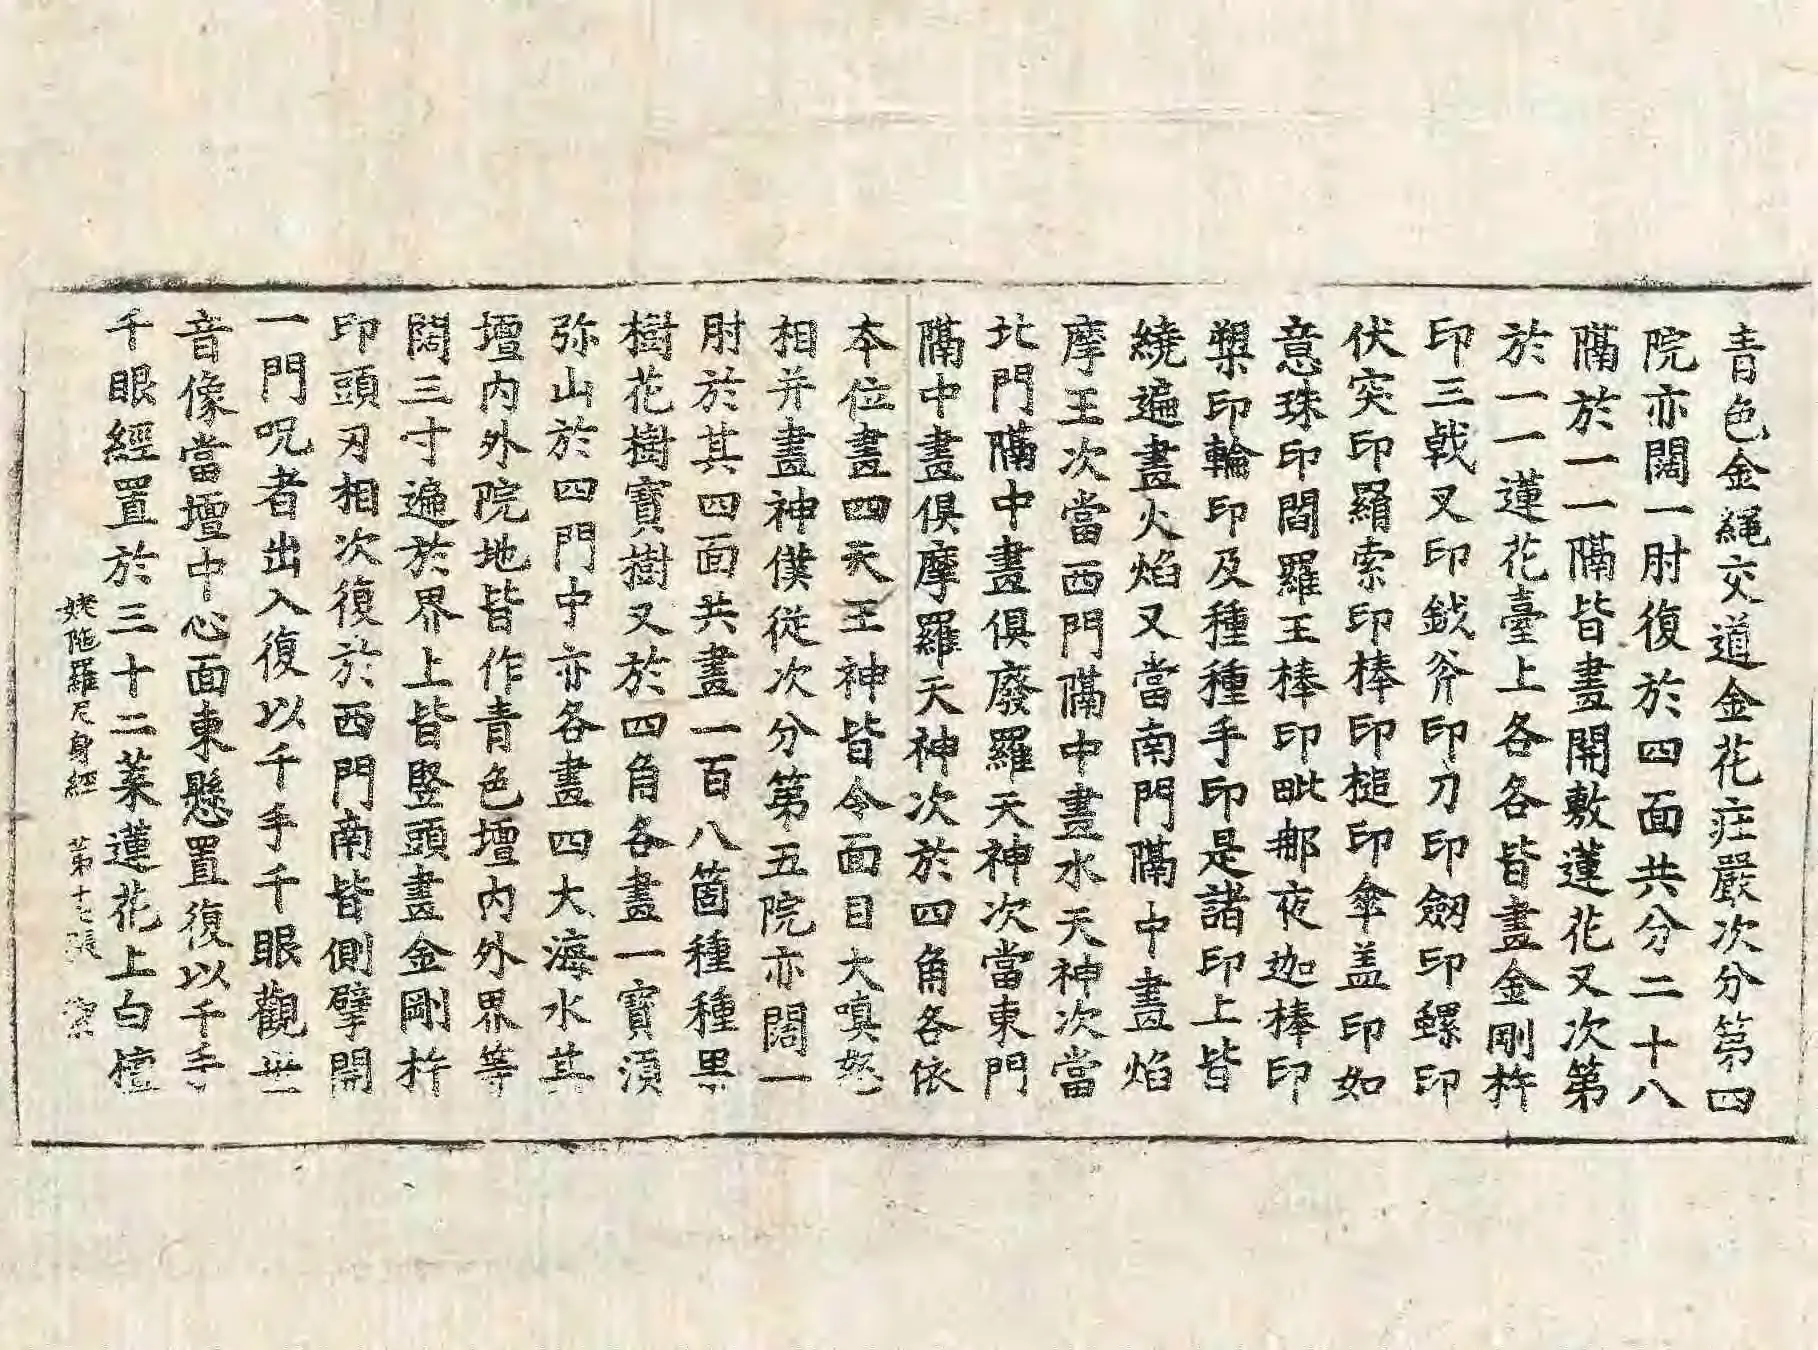 青色金繩交道金花庄嚴次分第四
院亦闊一肘復於四面共分二十八
隔於一一隔皆畫開敷蓮花又次第
於一一蓮花臺上各各皆畫金剛杵
印三戟叉印鉞斧印刀印劒印螺印
伏突印羂索印棒印槌印傘盖印如
意珠印閻羅王棒印毗那夜迦棒印
槊印輪印及種種手印是諸印上皆
繞遍畫火焰又當南門隔中畫焰
摩王次當西門隔中畫水天神次當
北門隔中畫俱廢羅天神次當東門
隔中畫俱摩羅天神次於四角各依
本位畫四天王神皆令面目大嗔怒
相并畫神僕從次分第五院亦闊一
肘於其四面共畫一百八箇種種果
樹花樹寳樹又於四角各畫一寳湏
弥山於四門中亦各畫四大海水其
壇内外院地皆作青色壇内外界等
闊三寸遍於界上皆竪頭畫金剛杵
印頭刃相次復於西門南皆側擘開
一門呪者出入復以千手千眼觀世
音像當壇中心面東懸置復以千手
千眼經置於三十二葉蓮花上白檀
姥陁羅尼身經　第十七張